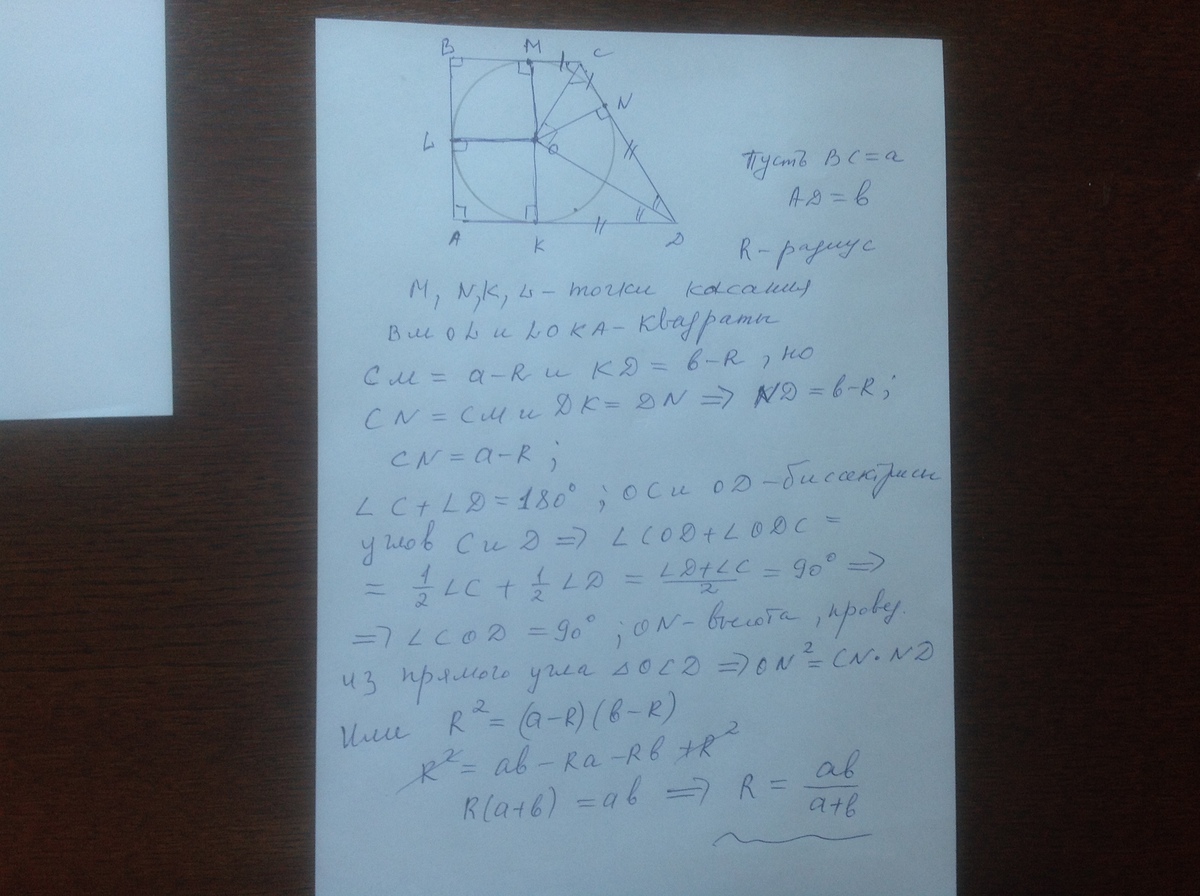 B M C
N
L O
A K D
Пусть BC = a
AD = b
R - радиус
M, N, K, L - точки касания
BMOL и LOKA - квадраты
CM = a-R и KD = b-R, но
CN = CM и DK = DN ⇒ ND = b-R;
CN = a-R;
∠C + ∠D = 180°; OC и OD - биссектрисы
углов C и D ⇒ ∠COD + ∠ODC =
= 1/2 ∠C + 1/2 ∠D = (∠D+∠C)/2 = 90° ⇒
⇒ ∠COD = 90°; ON - высота, провед.
из прямого угла △OCD ⇒ ON² = CN·ND
Или R² = (a-R)(b-R)
R² = ab - Ra - Rb + R²
R(a+b) = ab ⇒ R = ab/(a+b)